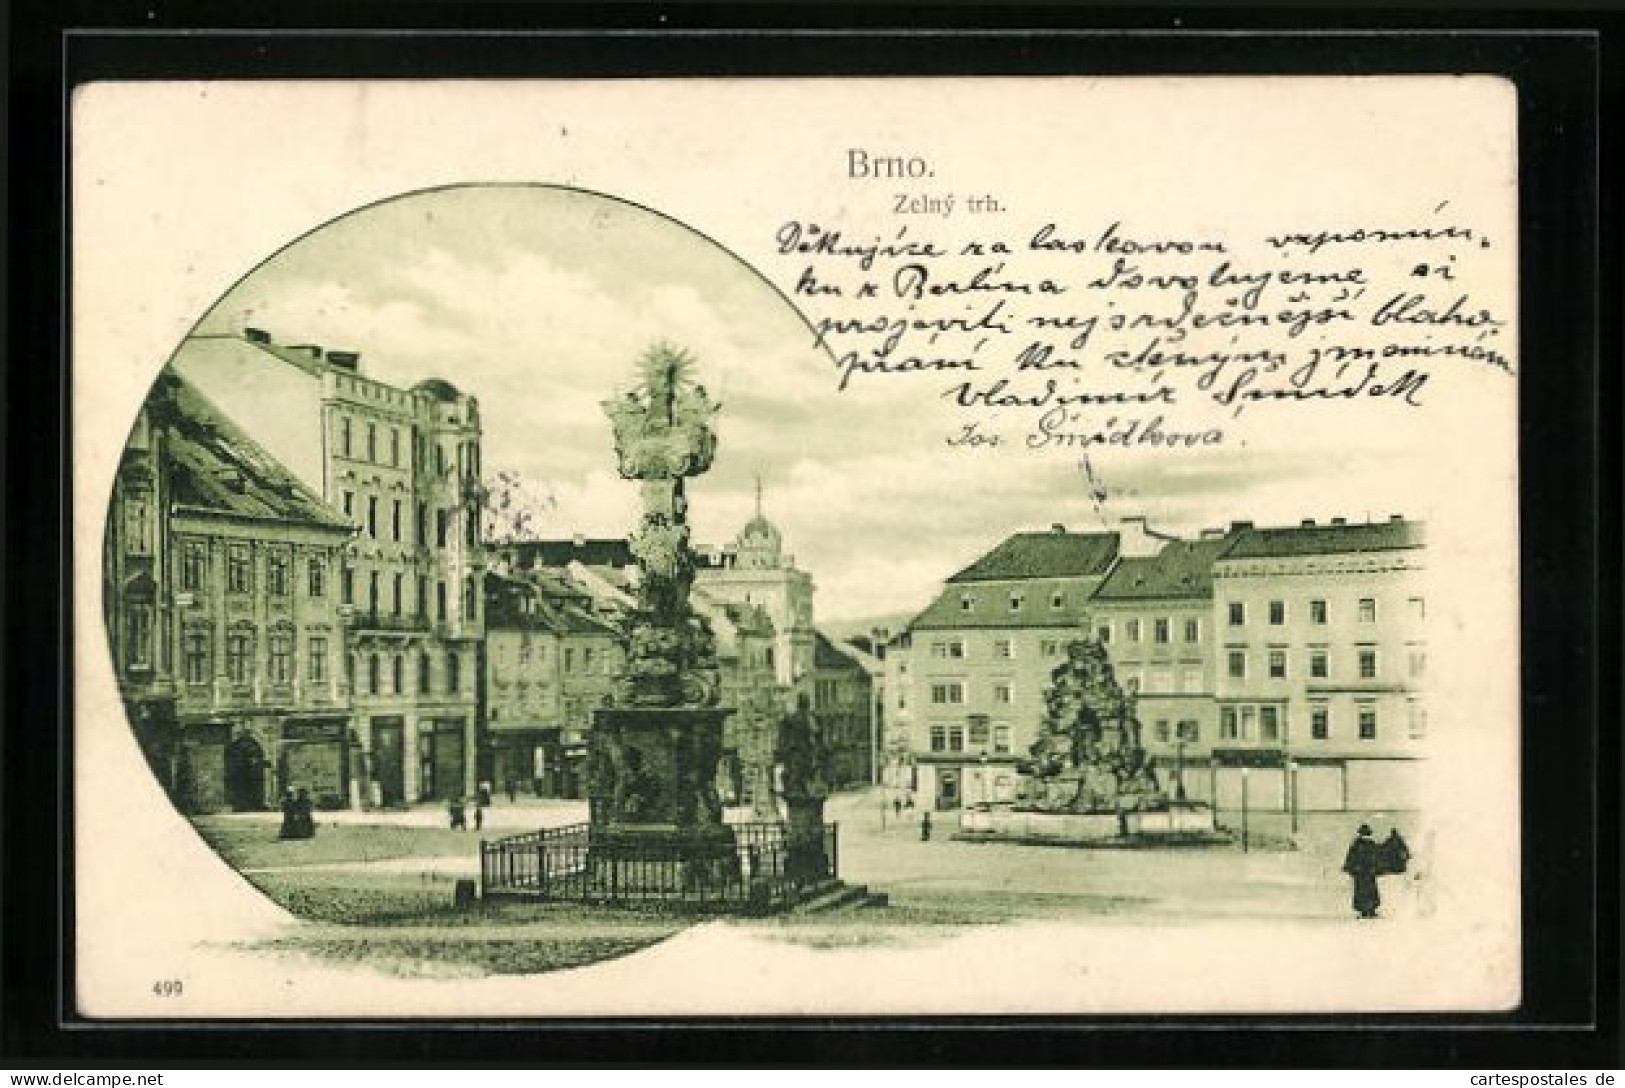 Brno.
Zelný trh.
Děkujíce za laskavou vzpomín-
ku z Berlína dovolujeme si
projeviti nejsrdečnější blaho-
přání ku ctěným jmeninám
Vladimír Šmídek
Jos. Šmídkova.
499
delcampe.net
cartespostales de